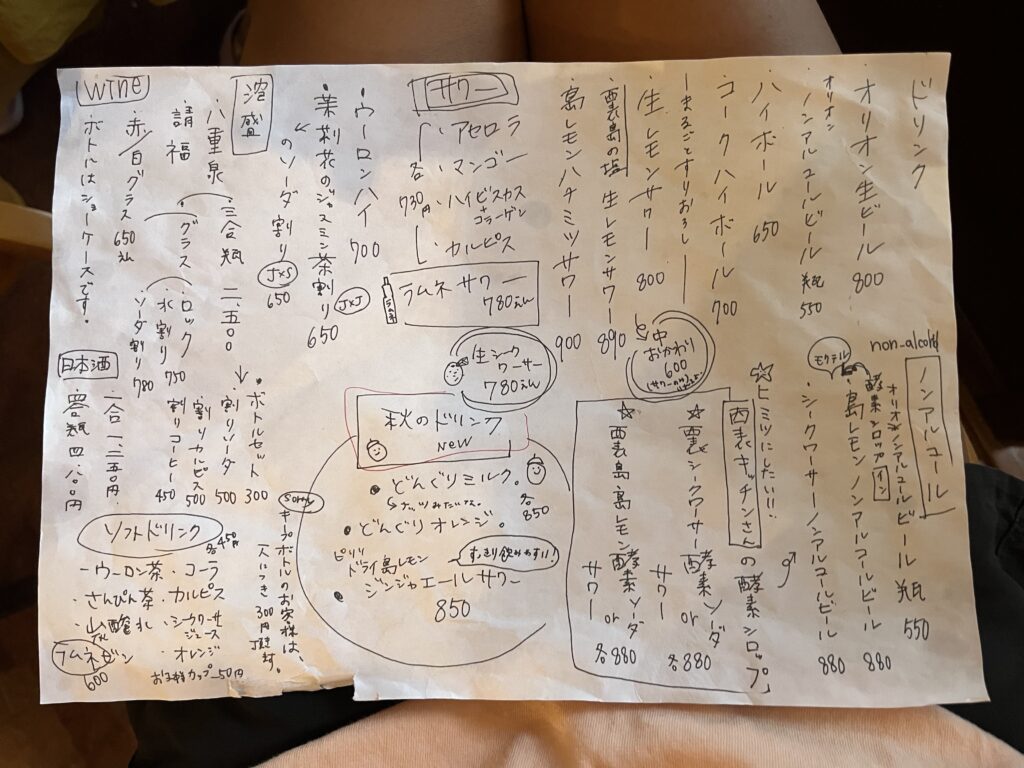 ドリンク
オリオン生ビール 800
オリオン
ノンアルコールビール 瓶 550
ハイボール 650
コークハイボール 700
―まるごとすりおろし―
生レモンサワー 800
中
おかわり
600
裏島の塩 生レモンサワー 890
島レモンハチミツサワー 900
サワー
各730円
・アセロラ
・マンゴー
・ハイビスカス
コラーゲン
・カルピス
ラムネサワー
780えん
生シーク
ワーサー
780えん
ウーロンハイ 700
茉莉花のジャスミン茶割り JXJ 650
〃のソーダ割り JXS 650
泡盛
八重泉
請福
三合瓶 二、五〇〇
グラス
ロック
水割り 750
ソーダ割り 780
・ボトルセット 300
割りソーダ 500
割りカルピス 500
割りコーヒー 450
wine
赤/白グラス 650えん
ボトルはショーケースです。
non-alcohol
ノンアルコール
オリオンノンアルコールビール 瓶 550
モクテル
酵素シロップイン
・島レモンノンアルコールビール 880
・シークワーサーノンアルコールビール 880
☆ヒミツにしたい!!
西表キッチンさんの酵素シロップ」
☆裏シークワーサー 酵素ソーダ or サワー 各880
☆西表島島レモン 酵素ソーダ or サワー 各880
秋のドリンク
NEW
・どんぐりミルク。
ナッツみたいな。
各850
・どんぐりオレンジ。
すっきり飲みやすい!
・ピリリ
ドライ島レモン
ジンジャエールサワー
850
sorry
キープボトルのお客様は、
一人につき、300円頂きます。
日本酒
一合 一、二五〇円
四合瓶 四、八〇〇円
ソフトドリンク
各450円
・ウーロン茶
・さんぴん茶
・コーラ
・カルピス
・シークワーサー
ジュース
・オレンジ
ラムネビン
600
お子様カップ 50円